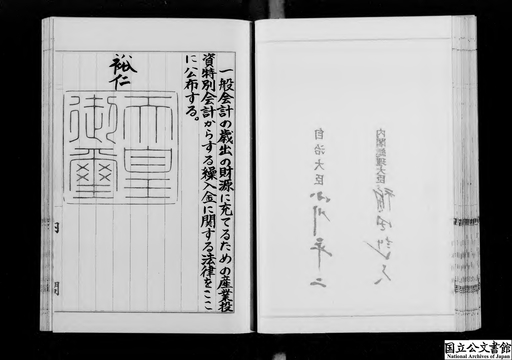 一般会計の歳出の財源に充てるための産業投
資特別会計からする繰入金に関する法律をここ
に公布する。
裕仁
天皇
御璽
内閣
内閣総理大臣
自治大臣
国立公文書館
National Archives of Japan